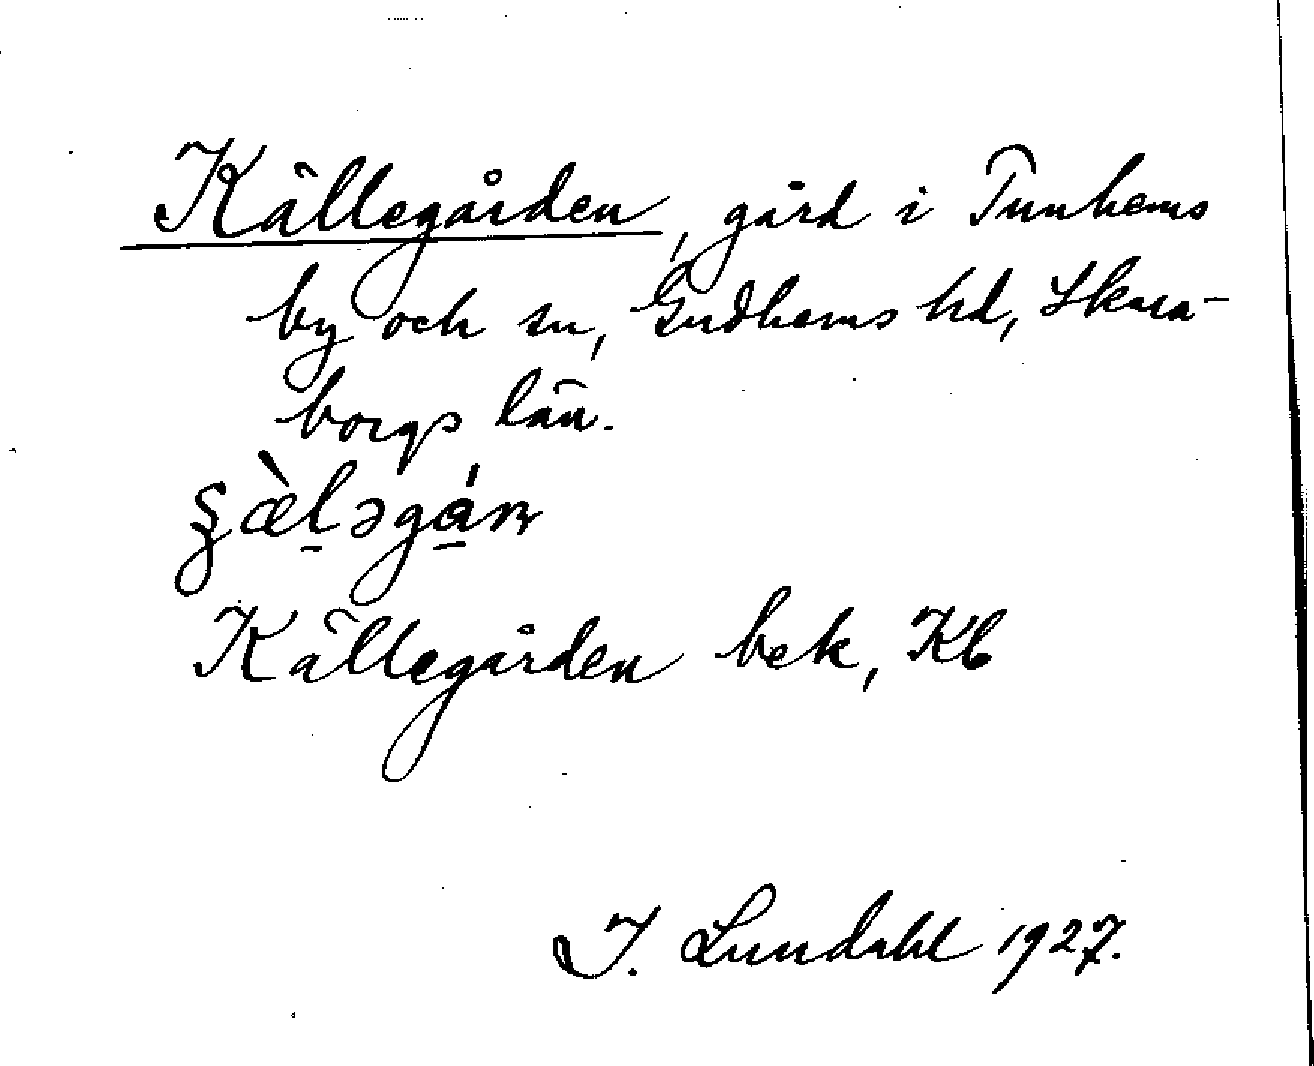 Källegården, gård i Tunhems
by och sn, Gudhems hd, Skara-
borgs län.
ʂæ̀l̠əgá̠rn
Källegården bek, Kb
I. Lundahl 1927.